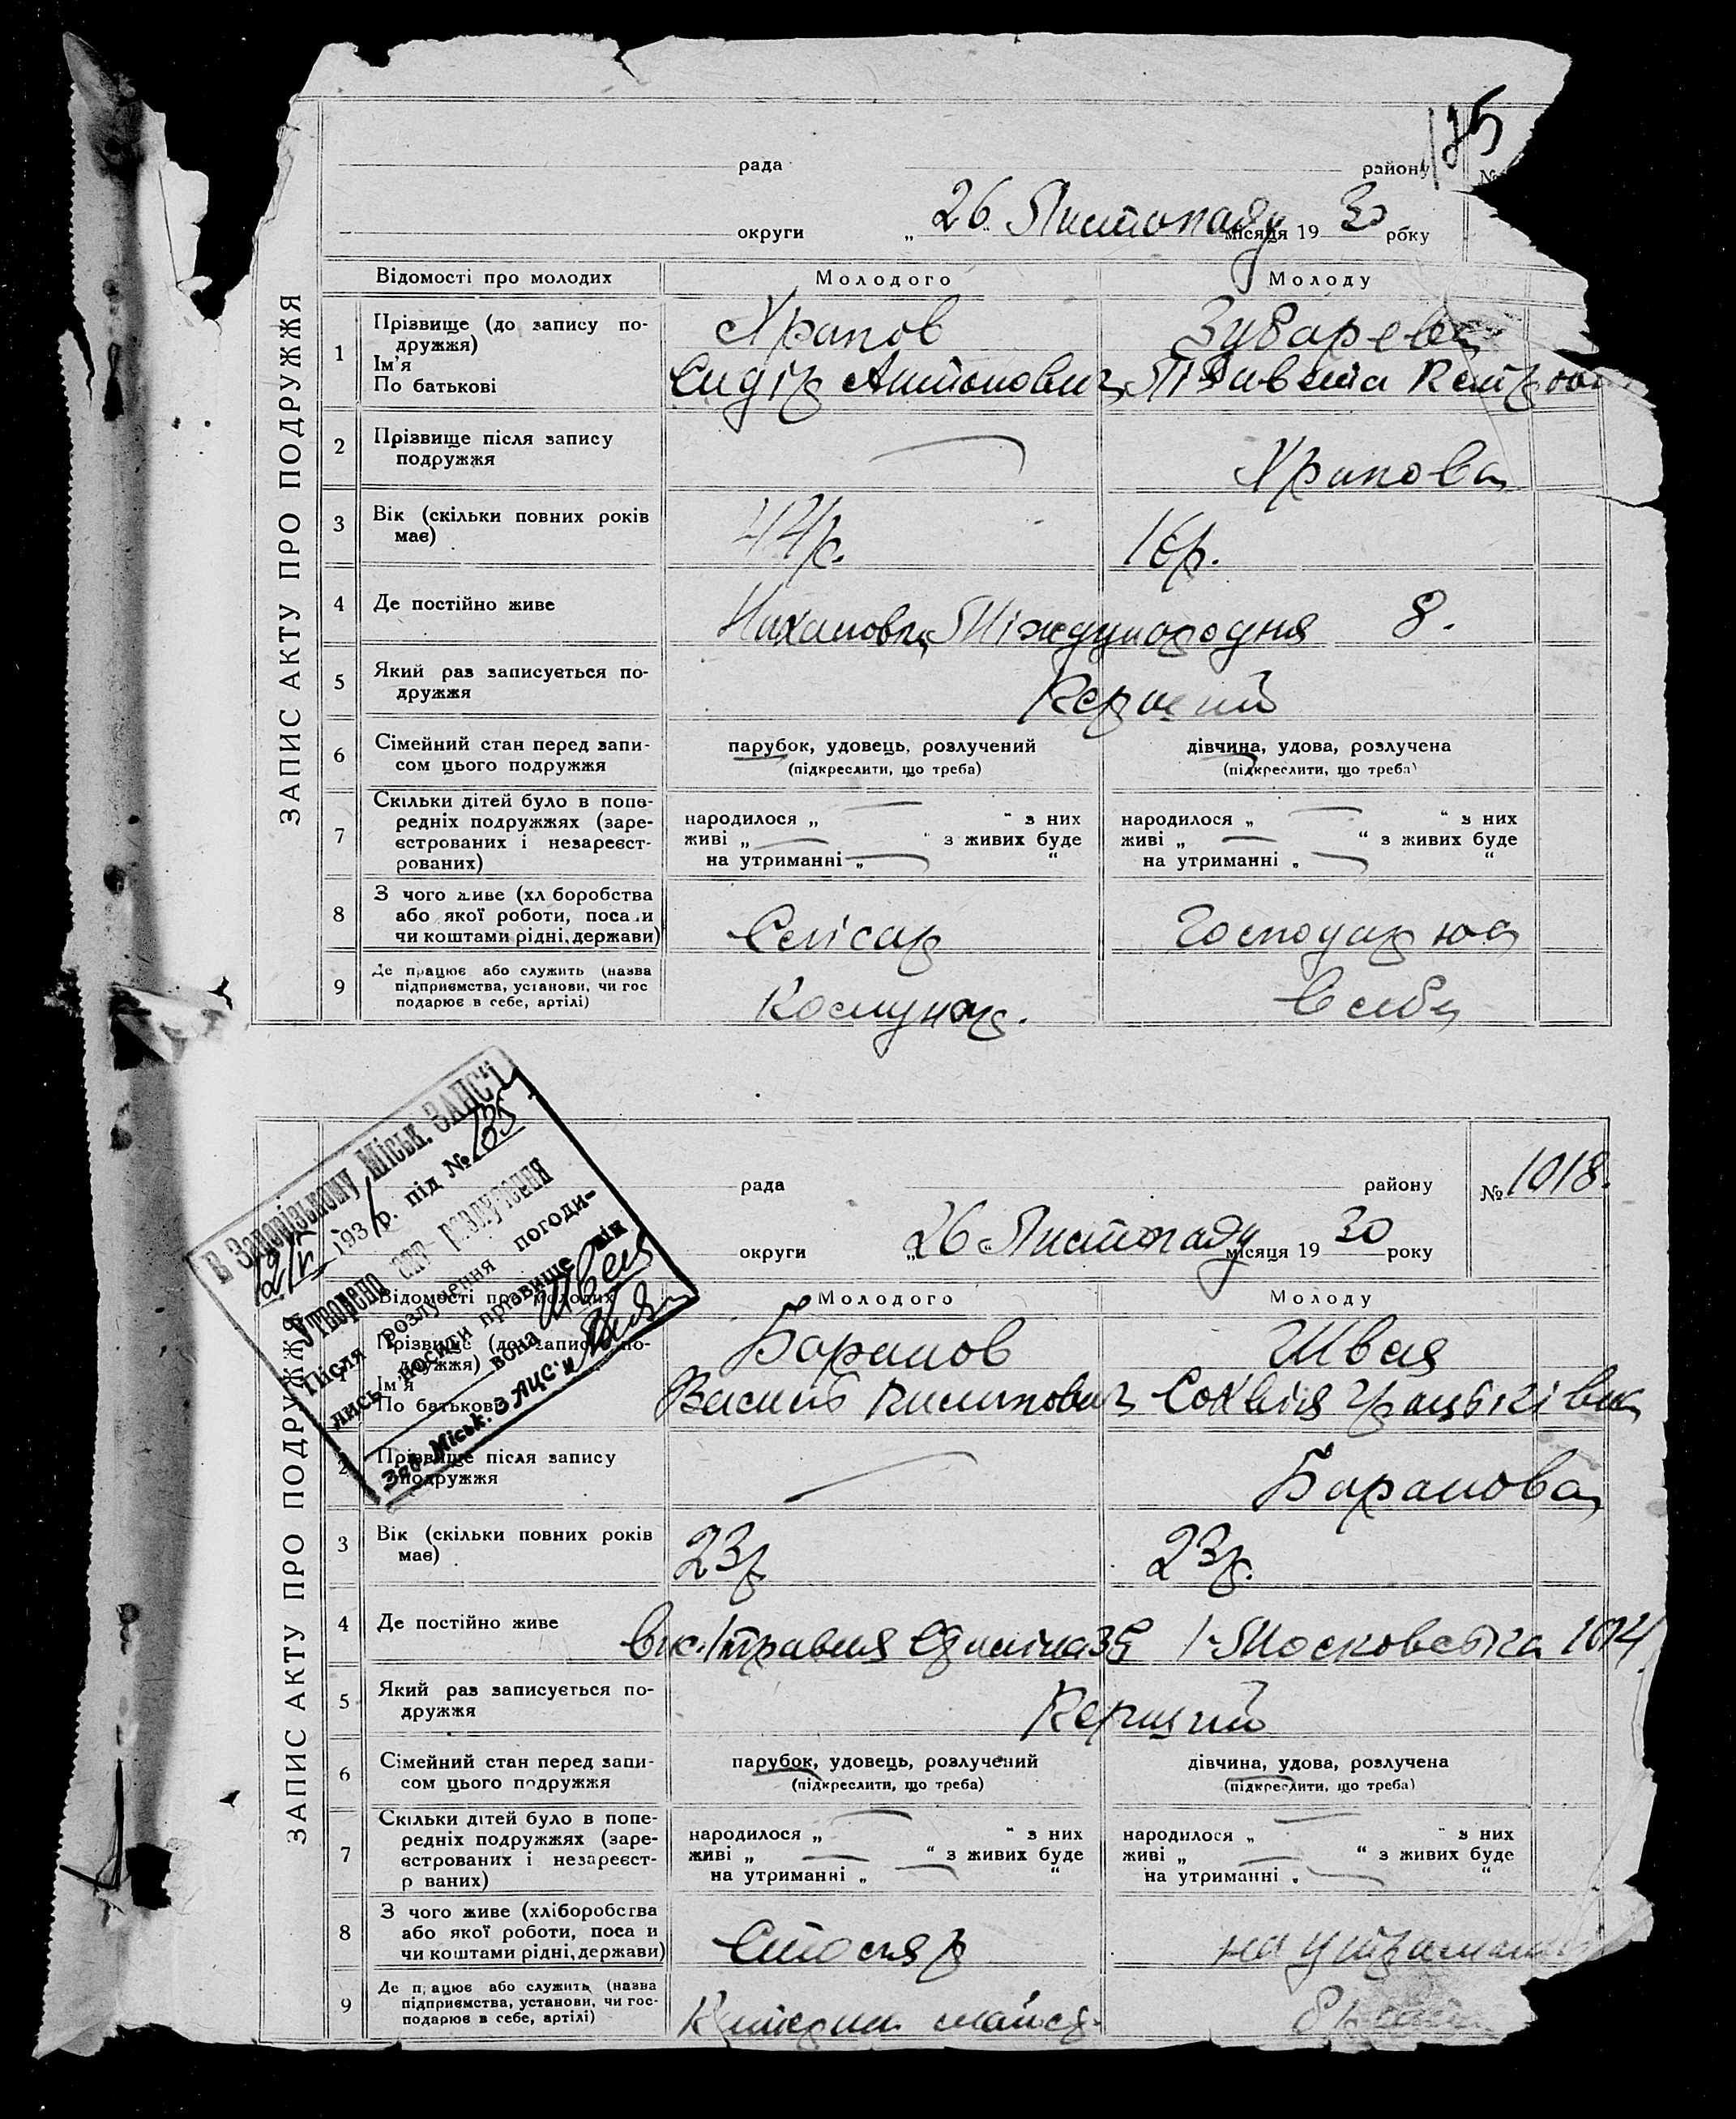 125
рада району №
округи „ 26 “ Листопаду місяця 19 30 року
ЗАПИС АКТУ ПРО ПОДРУЖЖЯ
Відомості про молодих Молодого Молоду
1 Прізвище (до запису по-
дружжя)
Ім'я
По батькові
Храпов
Сидір Антонович
2 Прізвище після запису
подружжя
Храпова
3 Вік (скільки повних років
має)
44 р. 16 р.
4 Де постійно живе
8.
5 Який раз записується по-
дружжя
Перший
6 Сімейний стан перед запи-
сом цього подружжя
парубок, удовець, розлучений
(підкреслити, що треба)
дівчина, удова, розлучена
(підкреслити, що треба)
7 Скільки дітей було в попе-
редніх подружжях (заре-
єстрованих і незареєст-
рованих)
народилося „ “ з них
живі „ “ з живих буде
на утриманні „ “
народилося „ “ з них
живі „ “ з живих буде
на утриманні „ “
8 З чого живе (хл боробства
або якої роботи, поса и
чи коштами рідні, держави)
Слісар
9 Де працює або служить (назва
підприємства, установи, чи гос
подарює в себе, артілі)
Комунар.
рада району № 1018.
округи „ 26 “ Листопаду місяця 19 30 року
В Запорізькому Міськ. ЗАПС'і
193 1 р. під № 135
Утворено акт розлучення
Після розлучення погоди-
лись носити прізвище він
вона Швея
Зав. Міськ. ЗАЦС'у
ЗАПИС АКТУ ПРО ПОДРУЖЖЯ
Відомості про молодих Молодого Молоду
Прізвище (до запису по-
дружжя)
Ім'я
По батькові
Баранов Швея
Василь Пилипович
2 Прізвище після запису
подружжя
Баранова
3 Вік (скільки повних років
має)
23 р. 23 р.
4 Де постійно живе
1-Московська
5 Який раз записується по-
дружжя
Перший
6 Сімейний стан перед запи-
сом цього подружжя
парубок, удовець, розлучений
(підкреслити, що треба)
дівчина, удова, розлучена
(підкреслити, що треба)
7 Скільки дітей було в попе-
редніх подружжях (заре-
єстрованих і незареєст-
р ваних)
народилося „ “ з них
живі „ “ з живих буде
на утриманні „ “
народилося „ “ з них
живі „ “ з живих буде
на утриманні „ “
8 З чого живе (хліборобства
або якої роботи, поса и
чи коштами рідні, держави)
Столяр на
9 Де п ацює або служить (назва
підприємства, установи, чи гос-
подарює в себе, артілі)